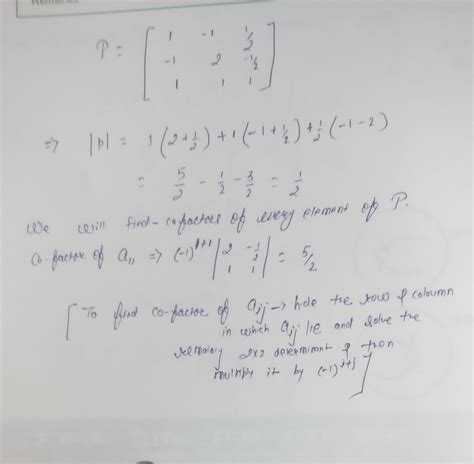 Remarks
1 -1 1/2
P = [ -1 2 -1/2 ]
1 1 1
=> |P| = 1(2+1/2) + 1(-1+1/2) + 1/2(-1-2)
= 5/2 - 1/2 - 3/2 = 1/2
We will find co-factors of every element of P.
Co-factor of a₁₁ => (-1)¹⁺¹ |2 -1/2; 1 1| = 5/2
[To find co-factor of aᵢⱼ → hide the row & coloumn
in which aᵢⱼ lie and solve the
remaining 2x2 determinant & then
multiply it by (-1)ⁱ⁺ʲ]